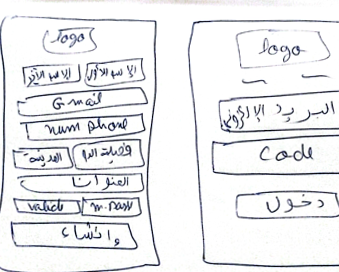 logo
الاسم الأول الاسم الأخير
Gmail
num phone
المدينة
العنوان
valide m.pass
إنشاء
logo
البريد الإلكتروني
Code
دخول